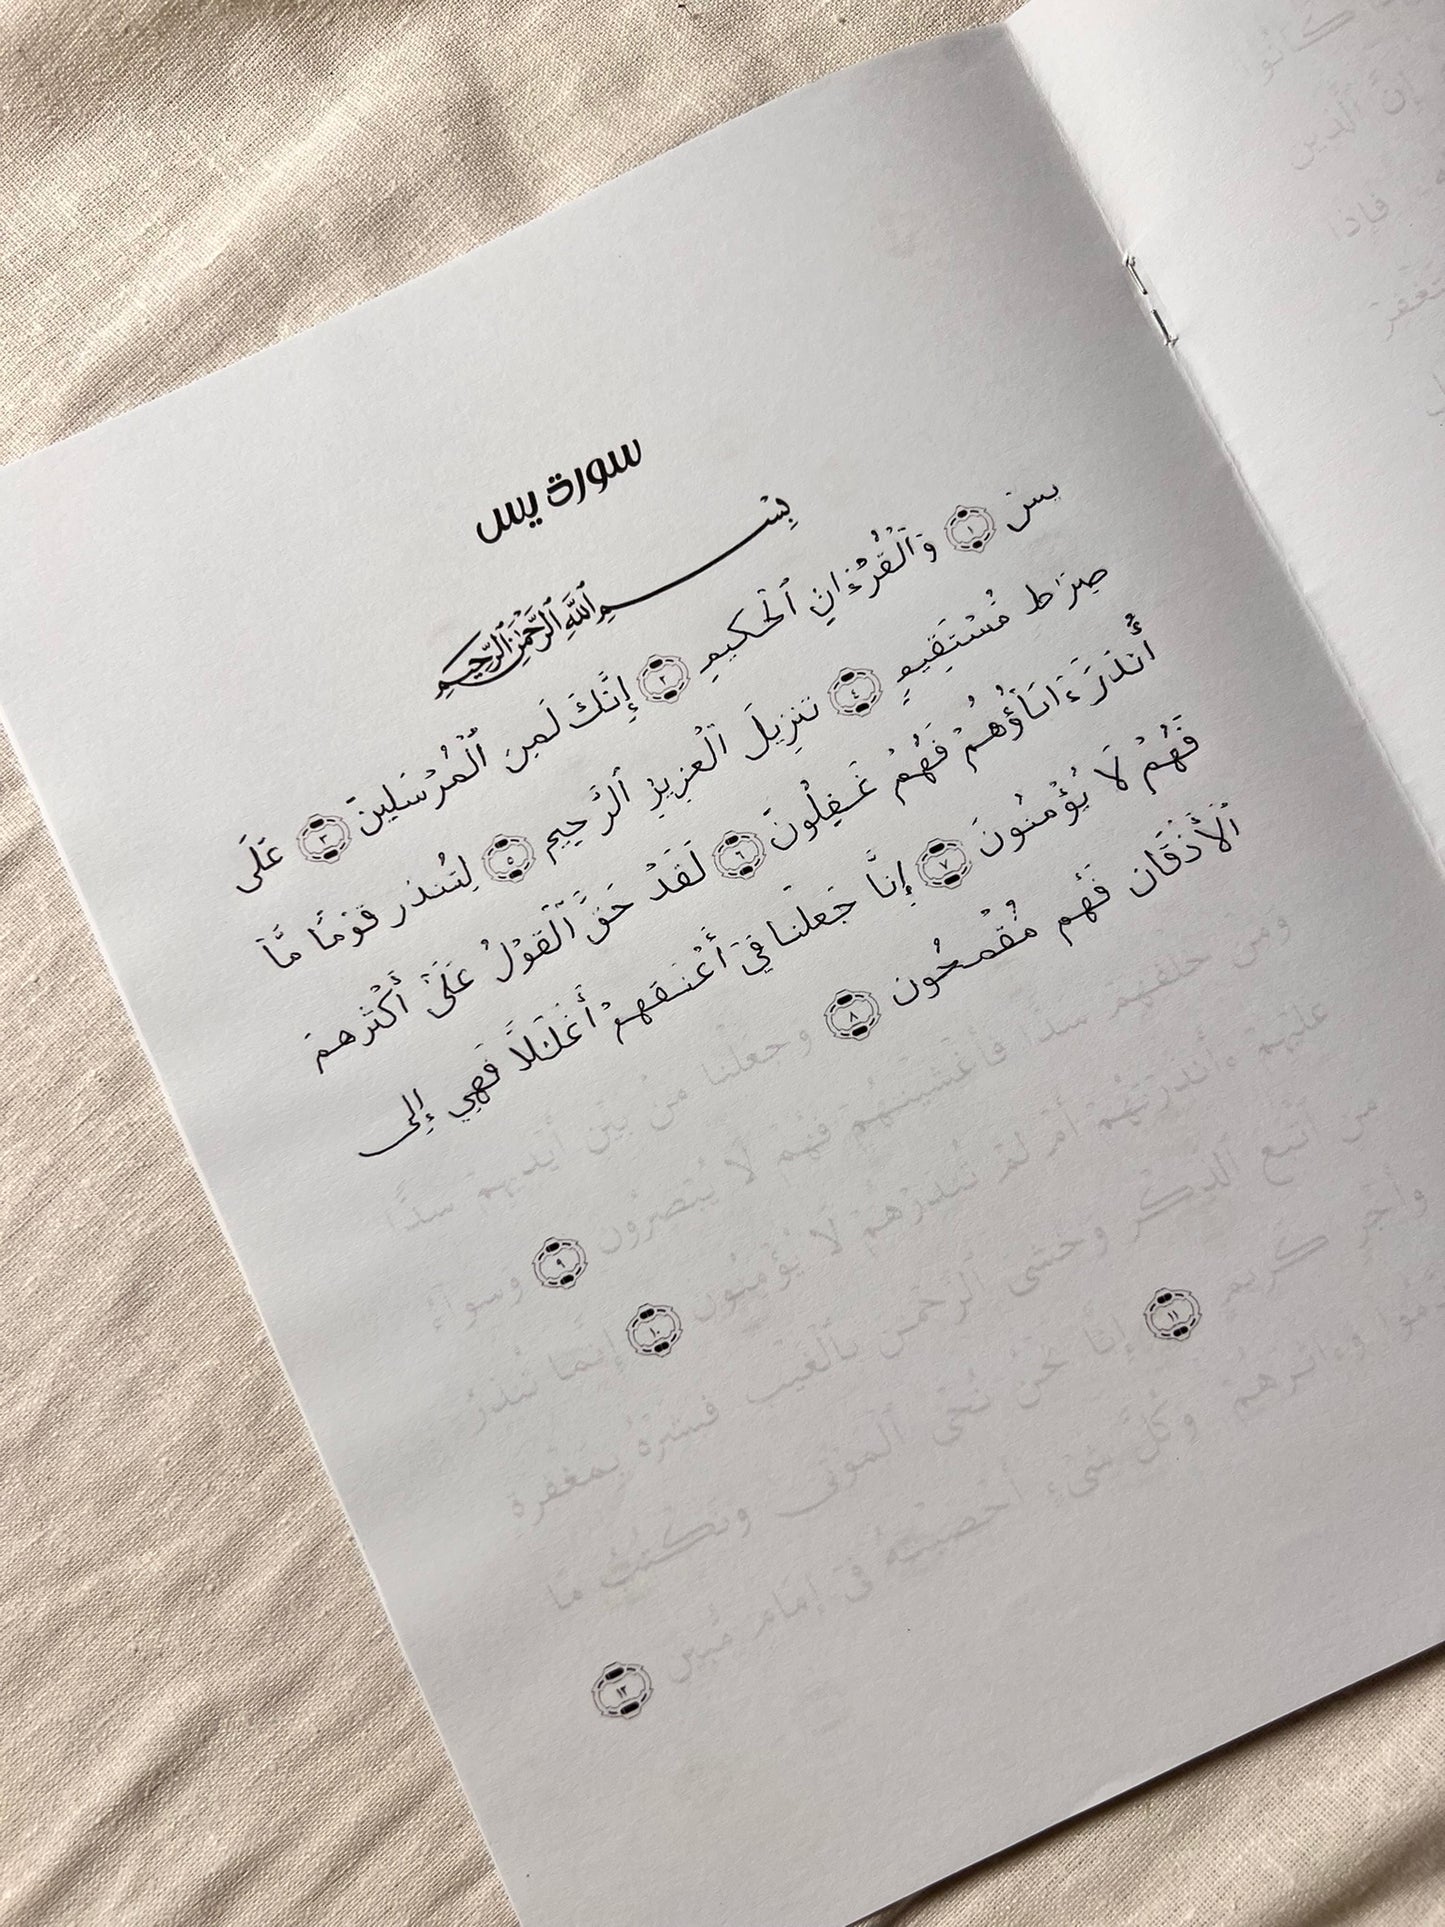 سورة يس
بِسْمِ ٱللَّهِ ٱلرَّحْمَٰنِ ٱلرَّحِيمِ
يسٓ ١ وَٱلْقُرْءَانِ ٱلْحَكِيمِ ٢ إِنَّكَ لَمِنَ ٱلْمُرْسَلِينَ ٣ عَلَىٰ
صِرَٰطٍ مُّسْتَقِيمٍ ٤ تَنزِيلَ ٱلْعَزِيزِ ٱلرَّحِيمِ ٥ لِتُنذِرَ قَوْمًا مَّآ
أُنذِرَ ءَابَآؤُهُمْ فَهُمْ غَٰفِلُونَ ٦ لَقَدْ حَقَّ ٱلْقَوْلُ عَلَىٰٓ أَكْثَرِهِمْ
فَهُمْ لَا يُؤْمِنُونَ ٧ إِنَّا جَعَلْنَا فِىٓ أَعْنَٰقِهِمْ أَغْلَٰلًا فَهِىَ إِلَى
ٱلْأَذْقَانِ فَهُم مُّقْمَحُونَ ٨ وَجَعَلْنَا مِنۢ بَيْنِ أَيْدِيهِمْ سَدًّا
وَمِنْ خَلْفِهِمْ سَدًّا فَأَغْشَيْنَٰهُمْ فَهُمْ لَا يُبْصِرُونَ ٩ وَسَوَآءٌ
عَلَيْهِمْ ءَأَنذَرْتَهُمْ أَمْ لَمْ تُنذِرْهُمْ لَا يُؤْمِنُونَ ١٠ إِنَّمَا تُنذِرُ
مَنِ ٱتَّبَعَ ٱلذِّكْرَ وَخَشِىَ ٱلرَّحْمَٰنَ بِٱلْغَيْبِ فَبَشِّرْهُ بِمَغْفِرَةٍ
وَأَجْرٍ كَرِيمٍ ١١ إِنَّا نَحْنُ نُحْىِ ٱلْمَوْتَىٰ وَنَكْتُبُ مَا
قَدَّمُوا۟ وَءَاثَٰرَهُمْ وَكُلَّ شَىْءٍ أَحْصَيْنَٰهُ فِىٓ إِمَامٍ مُّبِينٍ ١٢
كَانُوا
إِنَّ ٱلَّذِينَ
فَإِذَا